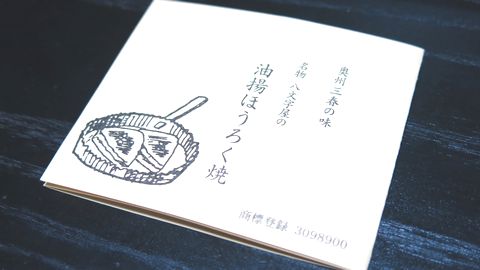 奥州三春の味
名物 八文字屋の
油揚ほうろく焼
商標登録 3098900